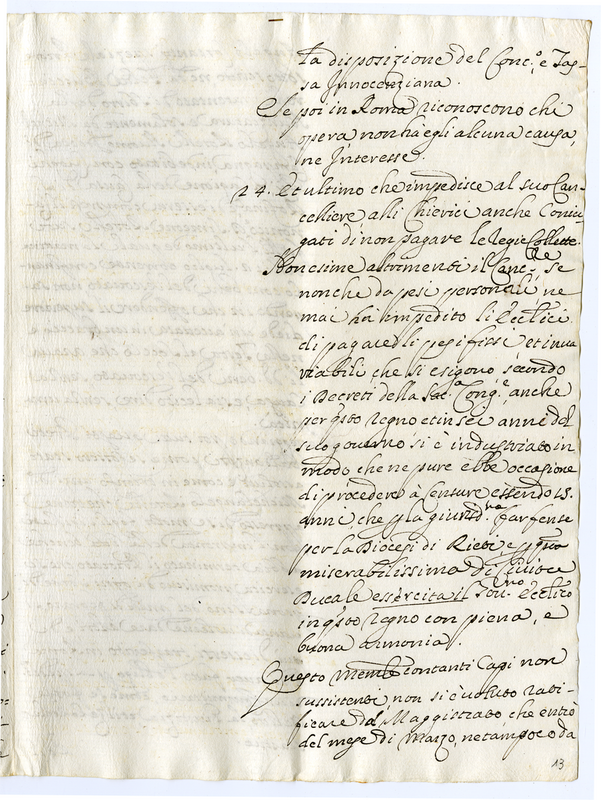 ta disposizione del Conc.o, e Tas-
sa Innocenziana.
Se poi in Roma riconoscono chi
opera non hà egli alcuna causa,
ne Interesse.
24. Et ultimo che impedisce al suo Can-
celliere alli Chierici anche Coniu-
gati di non pagare le Regie Collette.
Non esime altrimenti il Canc.re, se
nonche da pesi personali ne
mai hà impedito li Ecc'lici
di pagare li pesi fissi, et inva
riabili che si esigono secondo
i Decreti della Sac.a Cong.e, anche
per q'sto Regno et in sei anni del
suo governo si è industriato in
modo che ne pure ebbe occasione
di procedere à Censure essendo 15.
anni, che p la giurisd.ne Farfense
per la Diocesi di Rieti e p q'ta
miserabilissima di Civita
Ducale essercita il Gov.no Ecc'lico
in q'sto Regno con piena, e
buona armonia.
Questo Mem.le con tanti Capi non
sussistenti, non si è voluto rati-
ficare dal Maggistrato, che entrò
del mese di Marzo, ne tampoco da
13